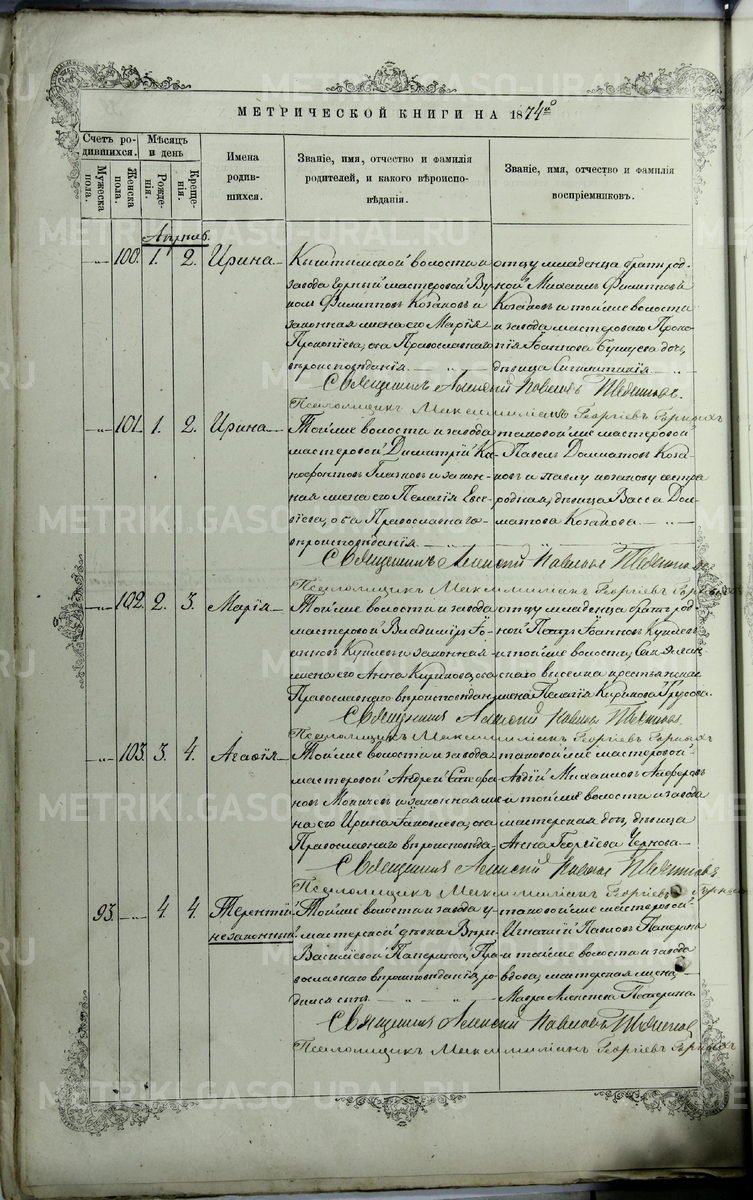 МЕТРИЧЕСКОЙ КНИГИ НА 1874й
Счетъ родившихся.
Мужеска пола.
Женска пола.
Мѣсяцъ и день
Рожденія.
Крещенія.
Имена родившихся.
Званіе, имя, отчество и фамилія родителей, и какого вѣроисповѣданія.
Званіе, имя, отчество и фамилія воспріемниковъ.
Апрѣль.
100. 1. 2. Ирина
Кыштымской волости и
завода мастеровой
Филипповъ Козаковъ и
законная жена его Марія
Прокопіева, оба Православнаго
вѣроисповѣданія.
отцу младенца братъ род
ной Михаилъ Филипповъ
Козаковъ и той же волости
и завода мастероваго Проко
пія Іоаннова дочь,
дѣвица
Священникъ Алексій Павловъ
Псаломщикъ Максимиліанъ Георгіевъ
101. 1. 2. Ирина
Той же волости и завода
мастеровой Димитрій Кс
енофонтовъ Глазковъ и закон
ная жена его Пелагія Евс
ѣева, оба Православнаго
вѣроисповѣданія
таковой же мастеровой
Павелъ Долматовъ Коза
ковъ и Павлу Козакову сестра
родная, дѣвица Васса Дол
матова Козакова
Священникъ Алексій Павловъ
Псаломщикъ Максимиліанъ Георгіевъ
102. 2. 3. Марія
Той же волости и завода
мастеровой Владиміръ Іо
анновъ и законная
жена его Анна Кирикова, оба
Православнаго вѣроисповѣдан.
отцу младенца братъ род
ной Петръ Іоанновъ
и той же волости,
выселка крестьянская
жена Пелагія Кирикова
Священникъ Алексій Павловъ
Псаломщикъ Максимиліанъ Георгіевъ
103. 3. 4. Агафія
Той же волости и завода
мастеровой Андрей Стефа
новъ и законная же
на его Ирина Іаковлева, оба
Православнаго вѣроисповѣд.
таковой же мастеровой
Авдій Михаиловъ Алферовъ
и той же волости и завода
мастерская дочь, дѣвица
Анна Георгіева Чернова
Священникъ Алексій Павловъ
Псаломщикъ Максимиліанъ Георгіевъ
93. 4. 4. Терентій
незаконный.
Той же волости и завода у
мастерской дѣвки
Васильевой Паториной, Пра
вославнаго вѣроисповѣданія, ро
дился сынъ
таковой же мастеровой
Игнатій Павловъ Паторинъ
и той же волости и завода
вдова, мастерская жена,
Мавра Алексѣева Паторина.
Священникъ Алексій Павловъ
Псаломщикъ Максимиліанъ Георгіевъ
METRIKI.GASO-URAL.RU